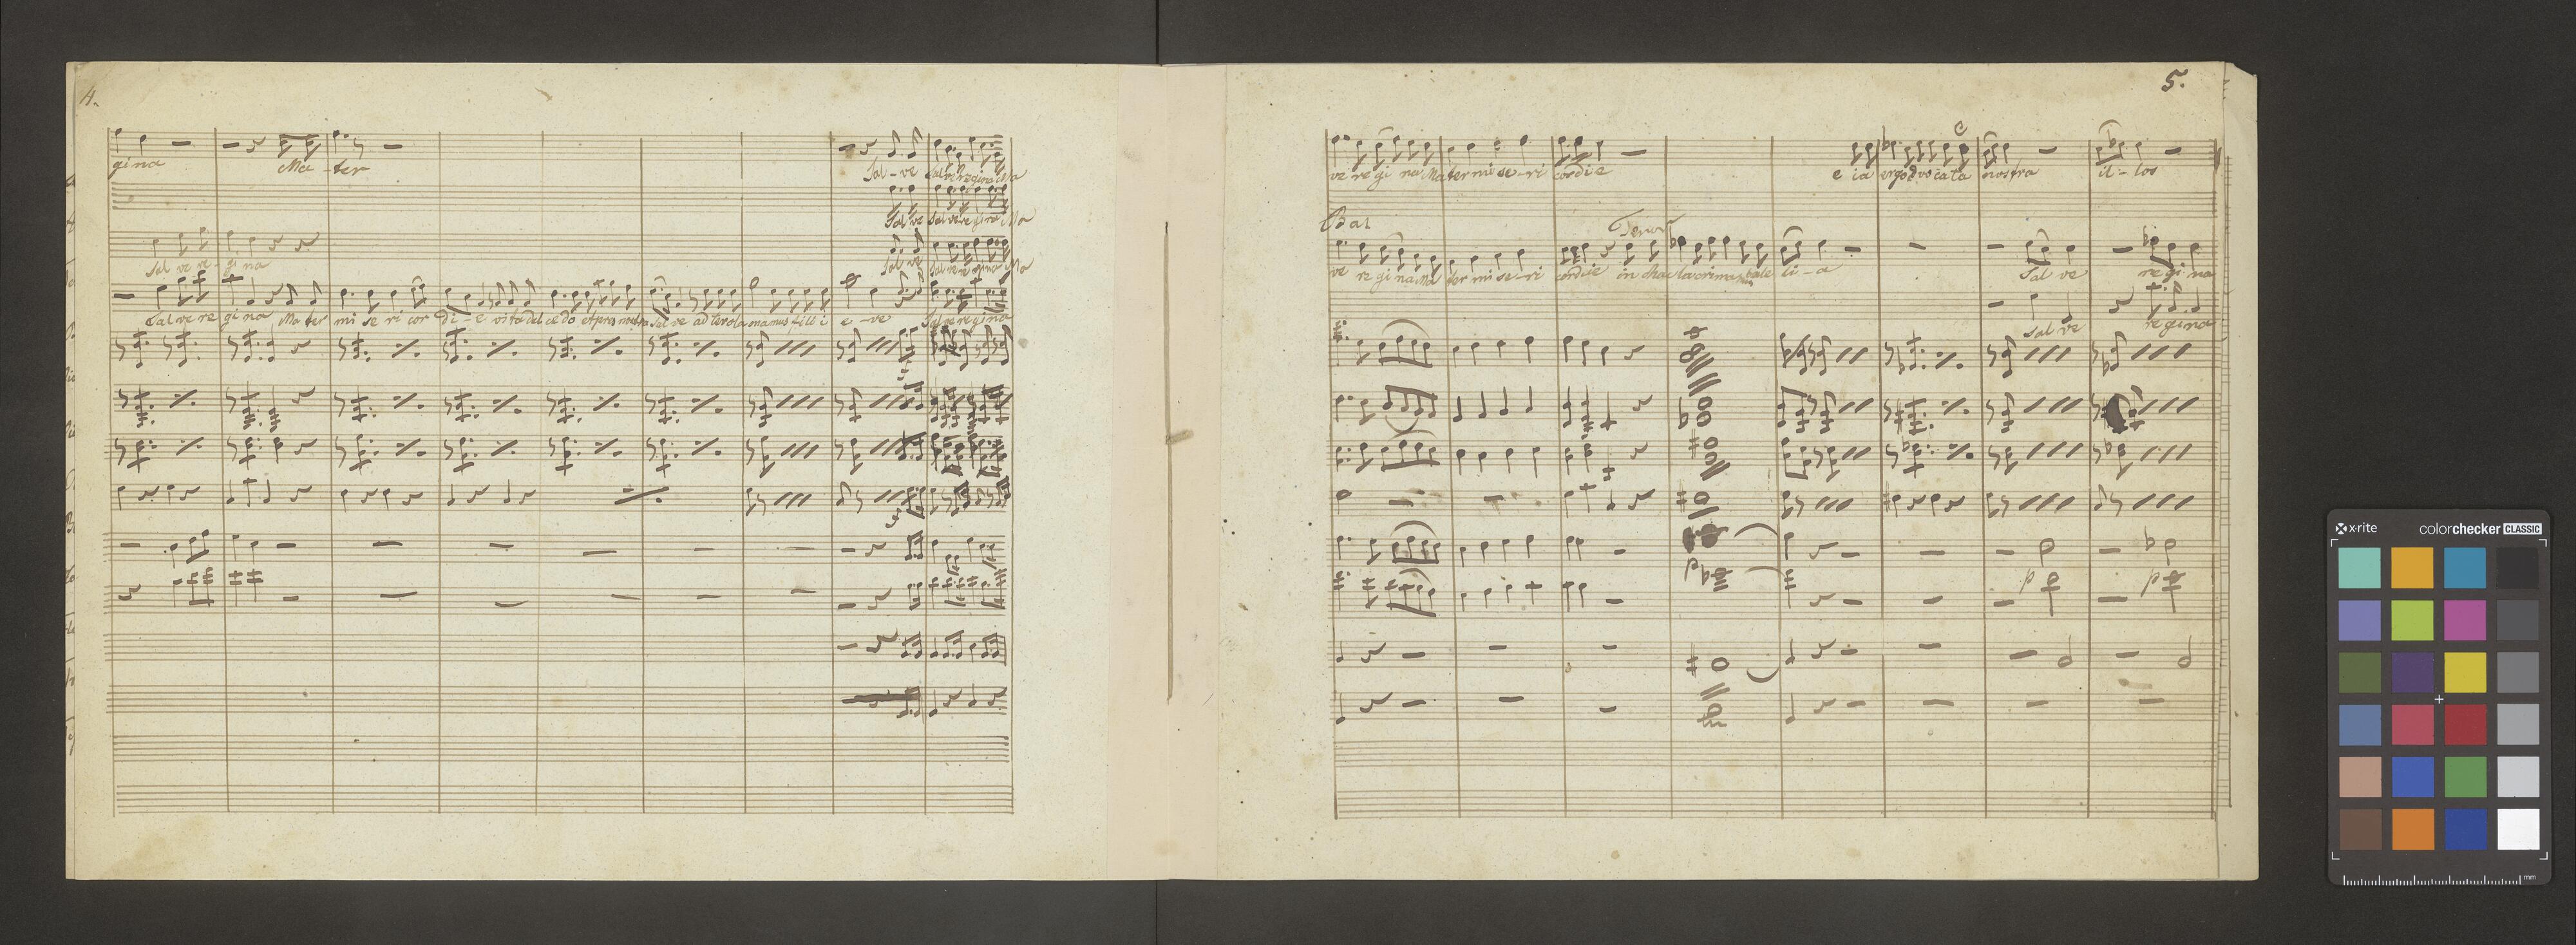 4.
gina Ma - ter Sal - ve Salve regina Ma
Sal ve Salve regina Ma
Sal ve re - gi na Sal ve Salve regina Ma
Sal ve re gi na Ma ter mi se ri cor di - e vita dul cedo et spes nostra Sal ve ad te cla mamus filii e - ve Salve regina
5.
ve re gi na Ma ter mi se - ri cordie e ia ergo advocata nostra il - los
Bas Tenor
ve re gi na Ma ter mi se - ri cordie in hac lacrimarum vale li - a Sal ve regina
Sal ve regina
p p
x-rite colorchecker CLASSIC
mm